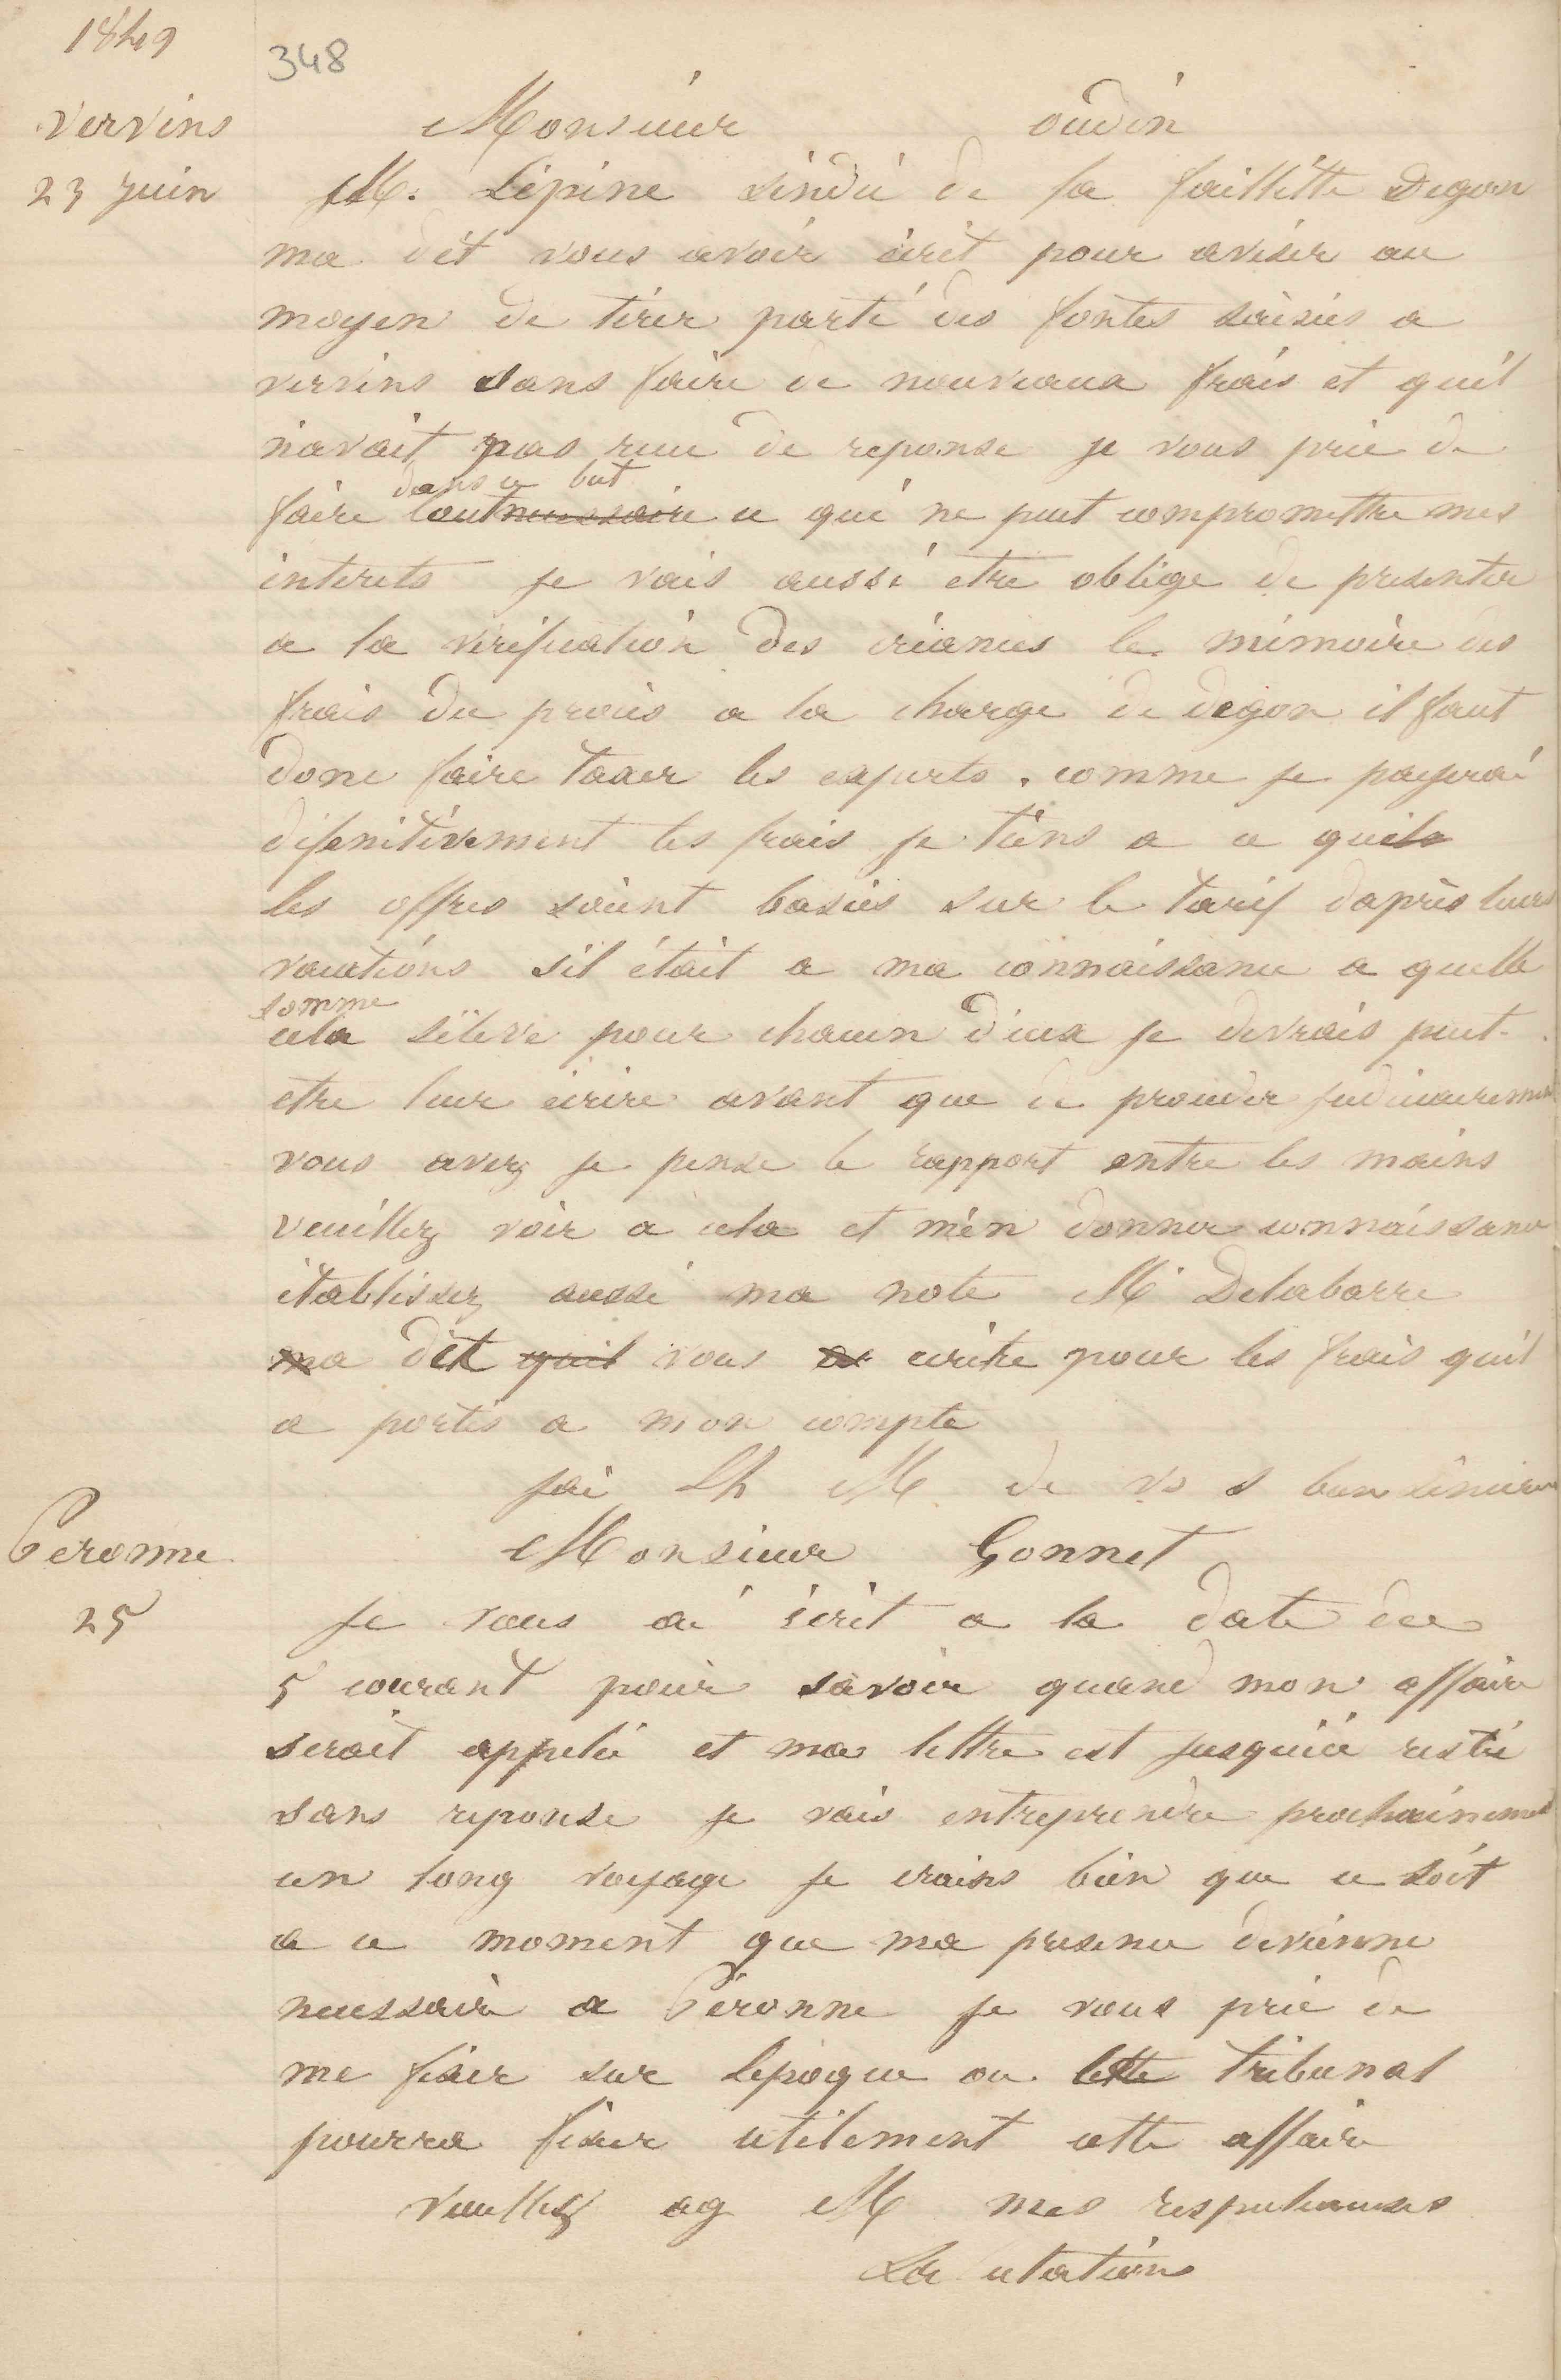 1849
348
Vervins
23 Juin
Monsieur oudin
M. Lépine sindic de la faillitte Degon
ma dit vous avoir écrit pour aviser au
moyen de tirer parti des fontes saisies a
vervins sans faire de nouveaux frais et qu'il
n'avait pas recu de reponse je vous prie de
dans ce but
faire tout necessaire ce qui ne peut compromettre mes
interets je vais aussi etre oblige de presenter
a la vérification des créances le mémoire des
frais du procès a la charge de degon il faut
donc faire taxer les experts . comme je payerai
difenitivement les frais je tiens a ce que
les offres soient basées sur le tarif d'après leurs
vacations s'il était a ma connaissance a quelle
somme
cela s'éleve pour chacun d'eux je devrais peut-
etre leur écrire avant que de proceder judiciairement
vous avez je pense le rapport entre les mains
veuillez voir a cela et m'en donner connaissance
établissez aussi ma note Mr Delabarre
ma dit quil vous a ecrire pour les frais qu'il
a portés a mon compte
jai Lh M de vs s bien sincere
Peronne
25
Monsieur Gonnet
Je vous ai écrit a la date du
5 courant pour savoir quand mon affaire
serait appelée et ma lettre est jusqu'ici restée
sans reponse je vais entreprendre prochainement
un long voyage je crains bien que ce soit
a ce moment que ma presence devienne
necessaire a Péronne je vous prie de
me fixer sur l'epoque ou le tribunal
pourra fixer utilement cette affaire
veuillez ag M mes respectueuses
Salutations